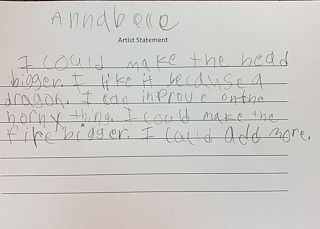 Annabece
Artist Statement
I could make the head
bigger. I like it because a
dragon. I can inprove onthe
horny thing. I could make the
fire bigger. I could add more.